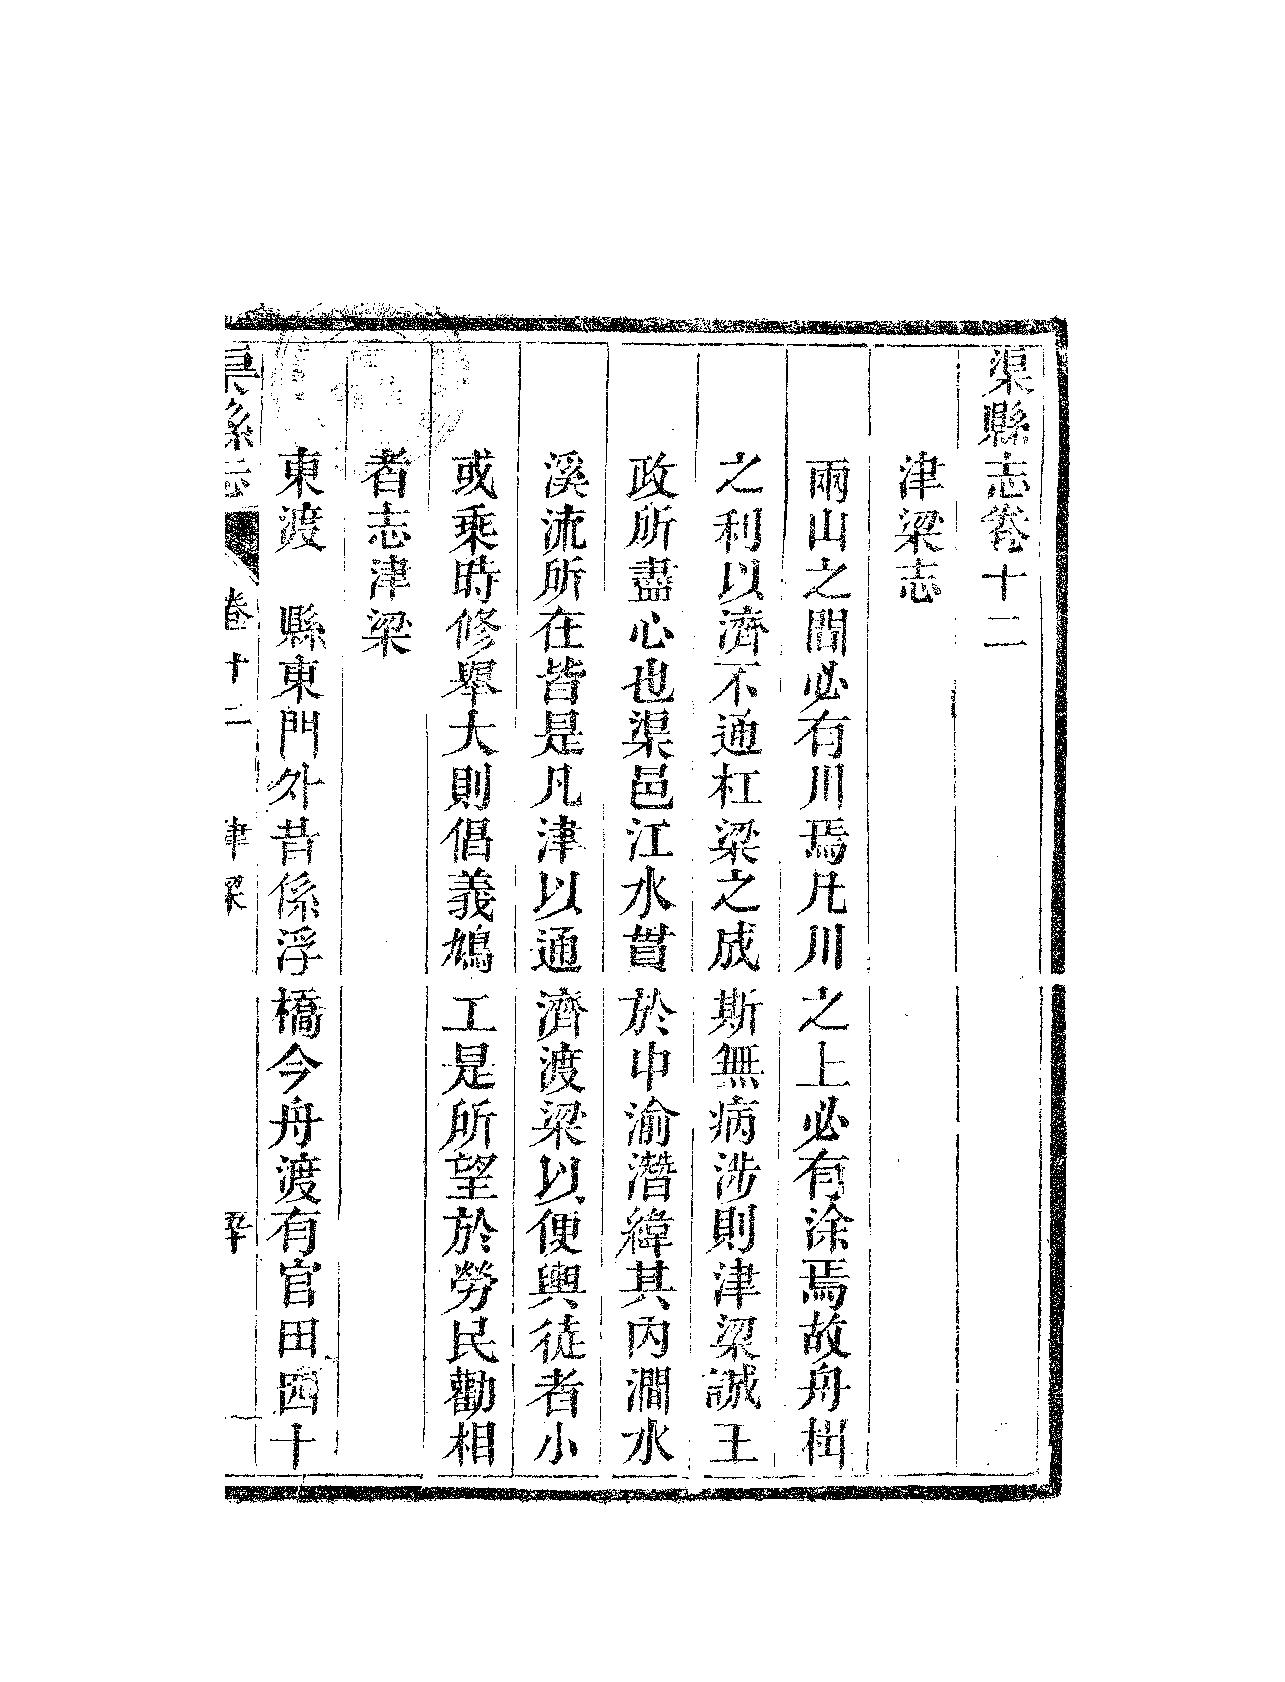 渠縣志卷十二
津梁志
兩山之間必有川焉凡川之上必有涂焉故舟楫
之利以濟不通杠梁之成斯無病涉則津梁誠王
政所盡心也渠邑江水貫於中渝潛緯其內澗水
溪流所在皆是凡津以通濟渡梁以便輿徒者小
或乘時修舉大則倡義鳩工是所望於勞民勸相
者志津梁
東渡　縣東門外昔係浮橋今舟渡有官田四十
渠縣志　卷十二　津梁　一